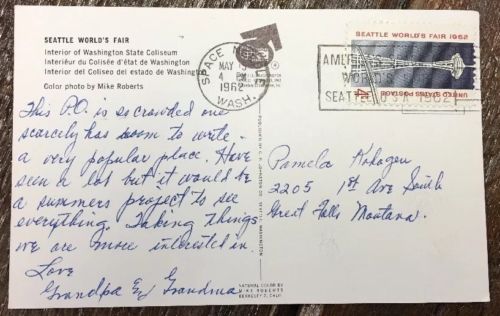 SEATTLE WORLD'S FAIR
Interior of Washington State Coliseum
Intérieur du Colisée d'état de Washington
Interior del Coliseo del estado de Washington
Color photo by Mike Roberts
This P.O. is so crowded one
scarcily has room to write.
a very popular place. Have
seen a lot but it would be
a summers project to see
everything. Taking things
we are more interested in.
Love
Grandpa and Grandma
SPACE NEEDLE
MAY
4 PM
1962
WASH.
WORLD'S
SEATTLE USA 1962
SEATTLE WORLD'S FAIR 1962
4¢
UNITED STATES POSTAGE
Pamela
2205 1st Ave South
Great Falls Montana.
NATURAL COLOR BY
MIKE ROBERTS
BERKELEY 2, CALIF.